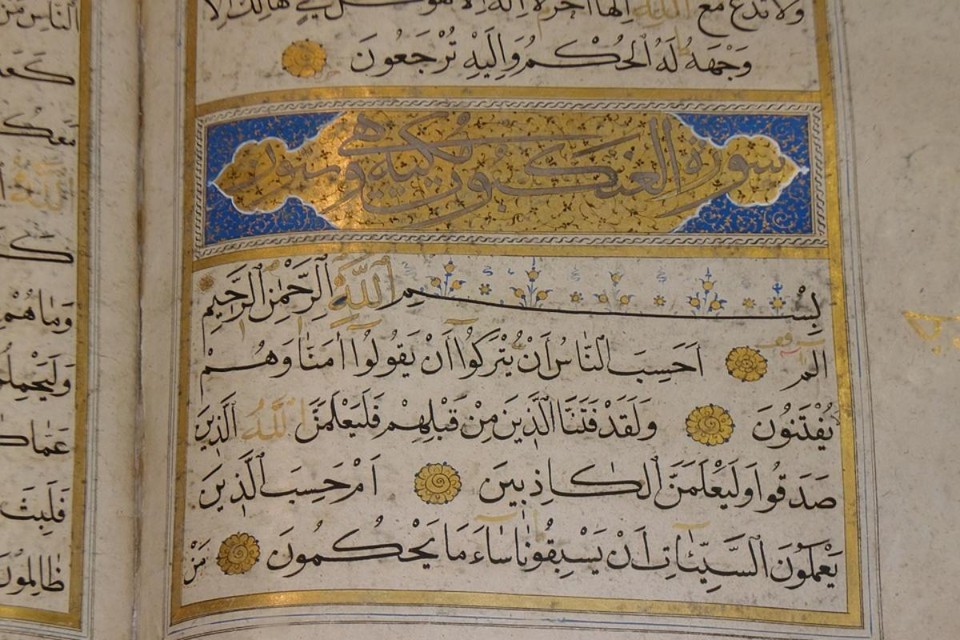 ولا تدع مع الله الها آخر لا اله الا هو كل شيء هالك الا
وَجْهَهُ لَهُ الْحُكْمُ وَاِلَيْهِ تُرْجَعُونَ
سورة العنكبوت مكية وهي
بِسْمِ اللّٰهِ الرَّحْمٰنِ الرَّحِيمِ
الم اَحَسِبَ النَّاسُ اَنْ يُتْرَكُوا اَنْ يَقُولُوا اٰمَنَّا وَهُمْ
يُفْتَنُونَ وَلَقَدْ فَتَنَّا الَّذِينَ مِنْ قَبْلِهِمْ فَلَيَعْلَمَنَّ اللّٰهُ الَّذِينَ
صَدَقُوا وَلَيَعْلَمَنَّ الْكَاذِبِينَ اَمْ حَسِبَ الَّذِينَ
يَعْمَلُونَ السَّيِّئَاتِ اَنْ يَسْبِقُونَا سَاءَ مَا يَحْكُمُونَ مَنْ
النَّاسِ مَنْ
مَعَكُمْ
وَمَا هُمْ
فَلَبِثَ
ظَالِمُونَ